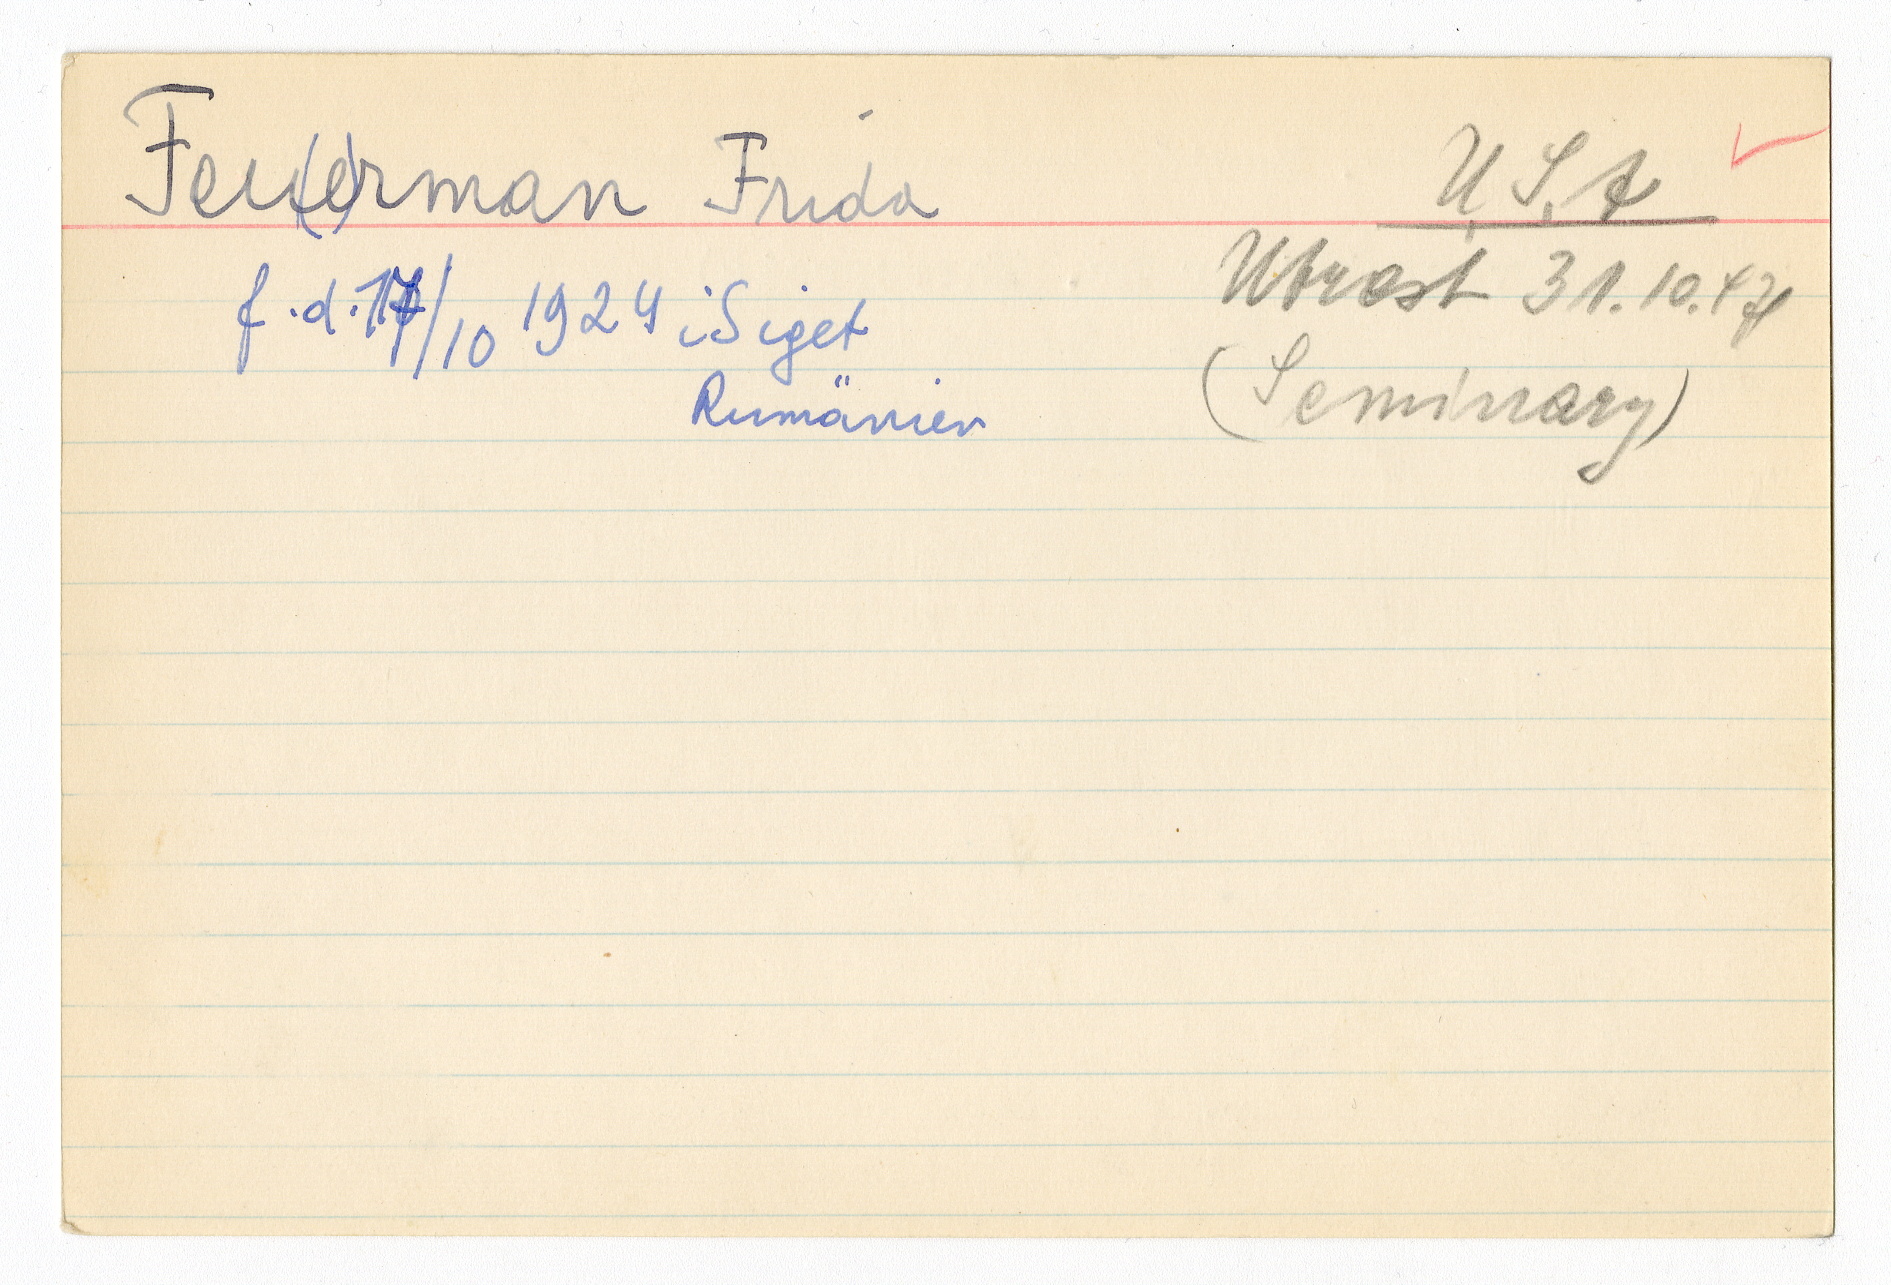 Feu(e)rman Frida
U.S.A
f.d. 17/10 1924 i Siget
Rumänien
Utrest 31.10.47
(Seminary)